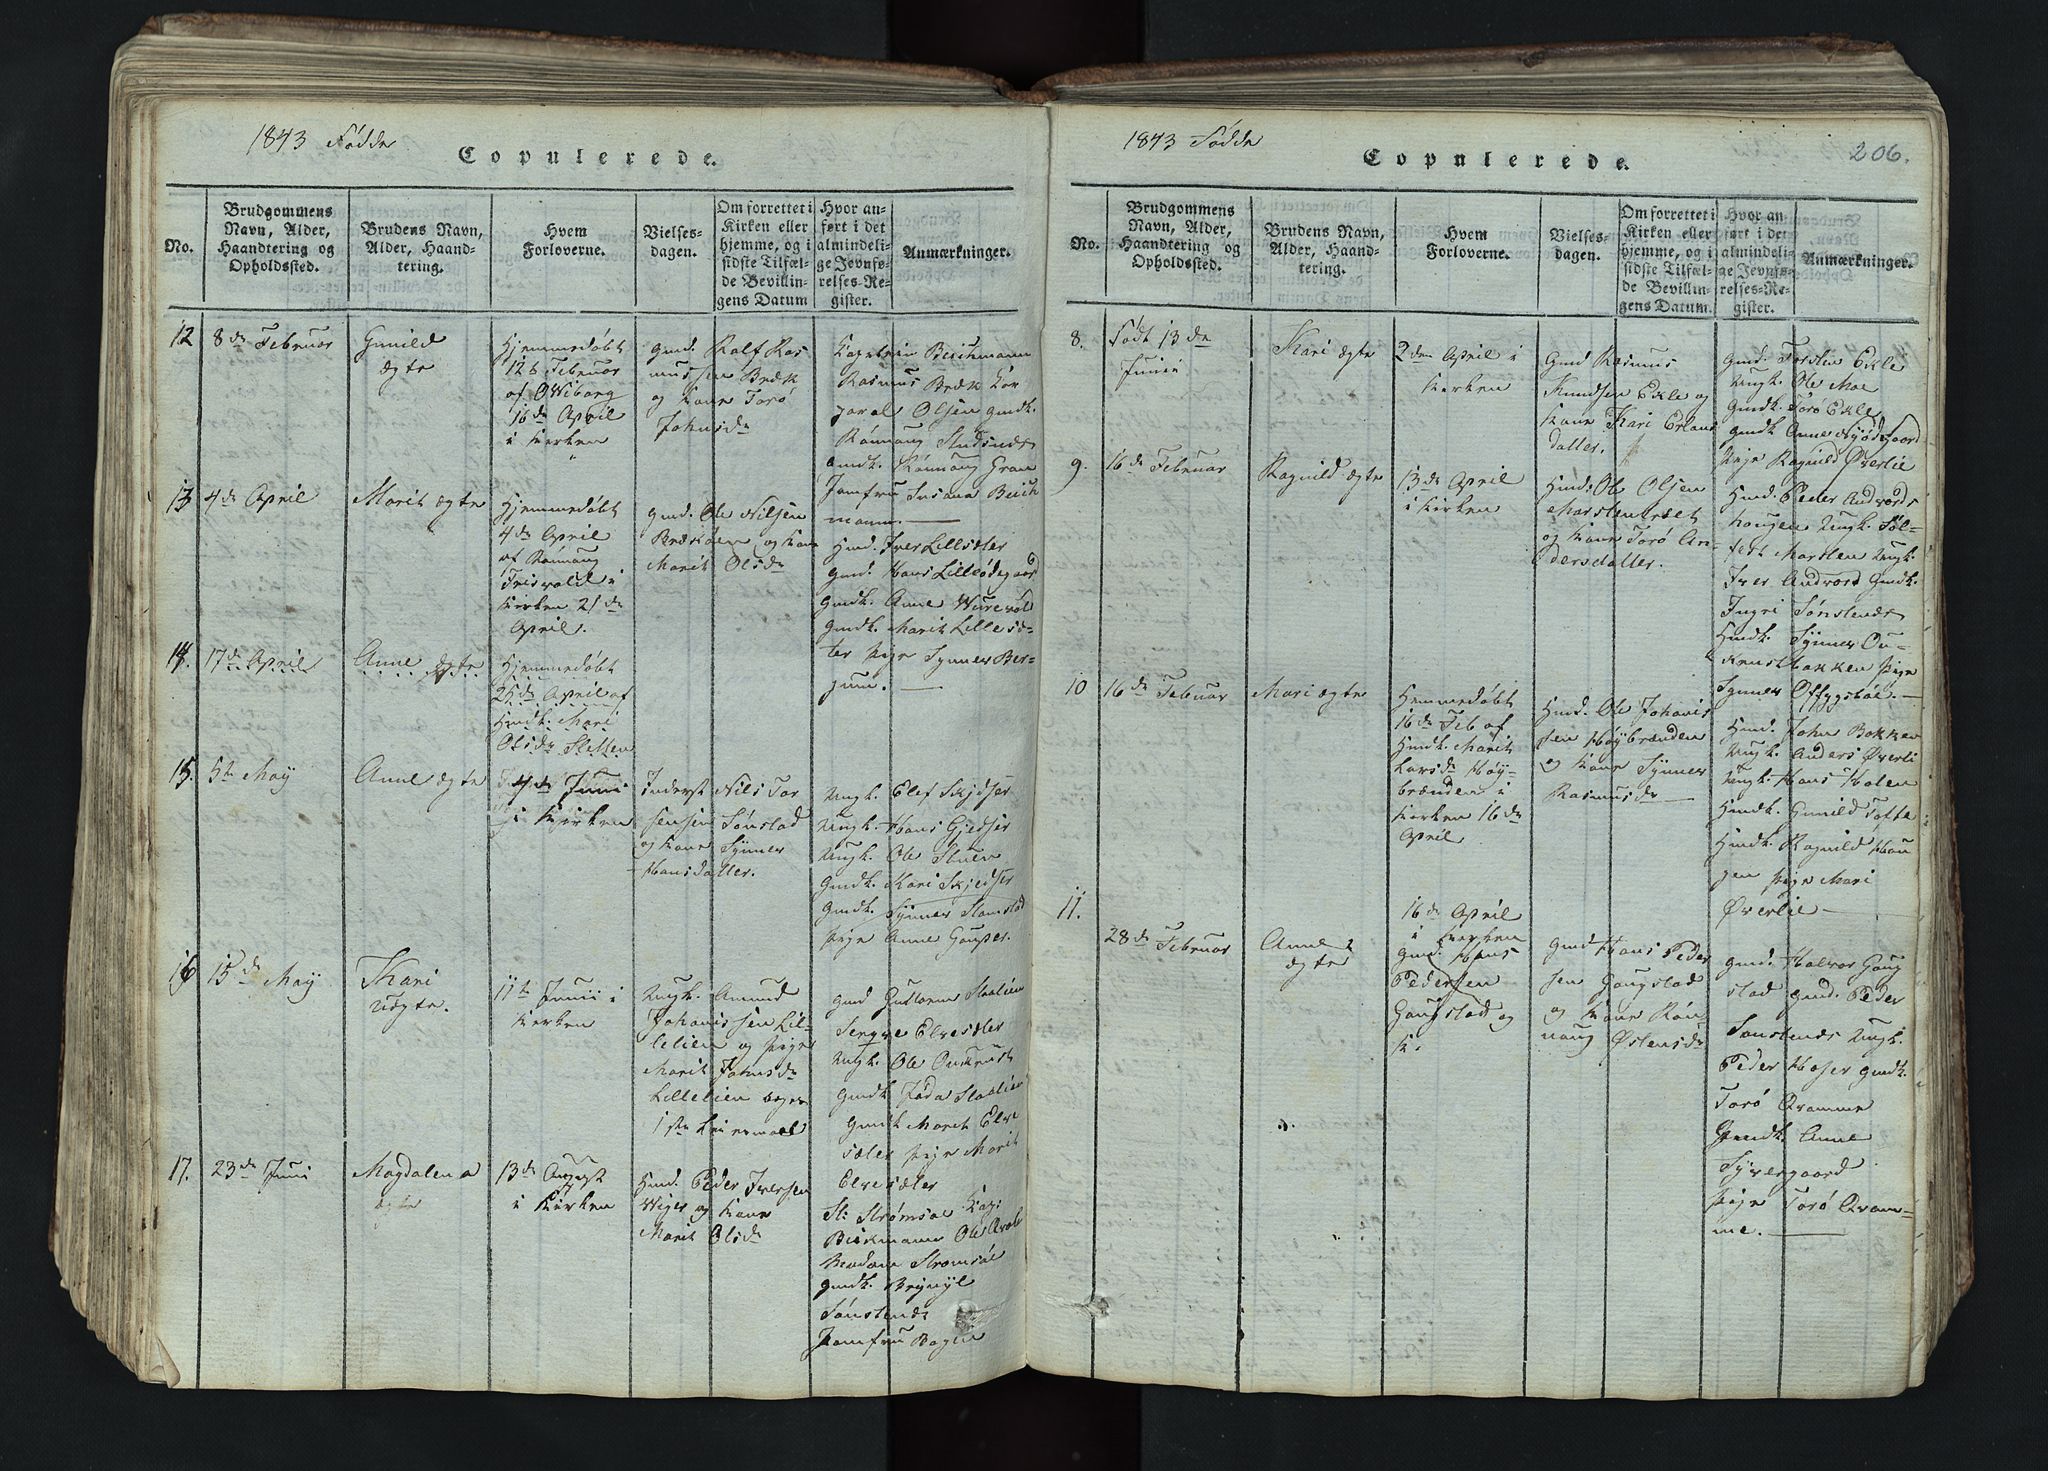 1843 Födde
Copulerede.
No.
Brudgommens
Navn, Alder,
Haandtering og
Opholdssted.
Brudens Navn,
Alder, Haand-
tering.
Hvem
Forloverne.
Vielses-
dagen.
Om forrettet i
Kirken eller
hjemme, og i
sidste Tilfæl-
de Bevillin-
gens Datum
Hvor an-
ført i det
almindeli-
ge Jevnfø-
relses-Re-
gister.
Anmærkninger.
12
8de Februar
Gunild
ægte
Hjemmedøbt
12t Februar
af OWiborg
16de April
i Kirken
gmd. Rolf Ras
mussen Bræk
og Kone Torö
Johnsdr
Kaptein Beichmann
Rasmus Bræk Kor
poral Olsen gmdk.
Rönnaug Stadsnes
gmdk. Rönnaug Gran
Jomfru Susana Beich
mann.
13
4de April
Marit ægte
Hjemmedøbt
4de April
af Rönnaug
Friisvold i
Kirken 21de
April.
gmd. Ole Nilsen
Brækken og Kone
Marit Olsdr
Hmd. Iver Lillesæter
gmd. Hans Lilleödegaard
Gmdk. Anne
gmdk. Marit Lillesæ-
ter Pige Synnev Ber-
gum.
14.
17de April
Anne ægte
Hjemmedøbt
25de April af
Hmdk. Mari
Olsdr Sletten
15.
5te May
Anne ægte
4de Juni
i Kirken
Inderst Nils Tor
stensen Sönstad
og Kone Synnev
Hansdatter.
Ungk. Elef Skjedser
Ungk. Hans Gjedser
Ungk. Ole Stuen
Gmdk. Kari Skjedser
gmdk. Synnev Stamstad
Pige Anne Gouper.
16
15de May
Kari
Uægte.
11te Juni i
Kirken
Ungk. Amund
Johanissen Lil-
lelien og Pige
Marit Johnsdr
Lillelien begge
1ste Leiermaal
gmd Guttorm Staalien
Sergve Elvesæter
Ungk. Ole Oukrust
gmdk Joda Staalien
gmdk Marit Elve
sæter Pige Marit
Elvesæter
17.
23de Juni
Magdalena
ægte
13de August
i Kirken
Hmd. Peder Iversen
Wiger og Kone
Marit Olsdr
St: Strömsøe Kapt
Beichmann Ole
Madam Strømsøe
gmdk. Brynyl
Sönstends
Jomfru
1843 Födde
Copulerede.
206.
No.
Brudgommens
Navn, Alder,
Haandtering og
Opholdssted.
Brudens Navn,
Alder, Haand-
tering.
Hvem
Forloverne.
Vielses-
dagen.
Om forrettet i
Kirken eller
hjemme, og i
sidste Tilfæl-
de Bevillin-
gens Datum.
Hvor an
ført i det
almindeli-
ge Jevnfø-
relses-Re-
gister.
Anmærkninger.
8.
Födt 13de
Kari ægte
2den April i
Kirken
Gmd Rasmus
Knudsen Ekle og
Kone Kari Erlans
datter.
gmd. Ekle
Ungk. Ole Moe
gmdk. Torö Ekle
gmdk Anne Nyödegaard
Pige Ragnild Øverlie
9.
16de Februar
Ragnild ægte
13de April
i Kirken
Hmd: Ole Olsen
Marsteneiet
og Kone Torö An-
dersdatter.
Hmd. Peder Andvords
hougen Ungk. Söl-
fest Marsten Ungk.
Iver Andvord Gmdk.
Ingri Sönstends
Hmdk. Synnev Ou-
krustbakken Pige
Synnev
10
16de Februar
Mari ægte
Hjemmedøbt
16de Feb af
Hmdk. Marit
Larsdr Höy-
brænden i
Kirken 16de
April
Hmd. Ole Johanis
sen Höybrænden
og Kone Synnev
Rasmusdr
Hmd. John Bakken
Ungk. Anders Øverli
Ungk. Hans Holen
Hmdk. Gunild Tofte
Hmdk. Ragnild Hau
gen Pige Mari
Øverlie
11.
28de Februar
Anne
ægte
16de April
i Kirken
gmd. Hans
Pedersen
Gaugstad og
K.
gmd Hans Peder
sen Gaugstad
og Kone Rön
naug Östensdr
gmd. Halvor Gaug
stad gmd. Peder
Sonstends Ungk.
Peder Moser gmdk.
Torö Qvamme
gmdk. Anne
Syvergaard
Pige Torö Qvam-
me.